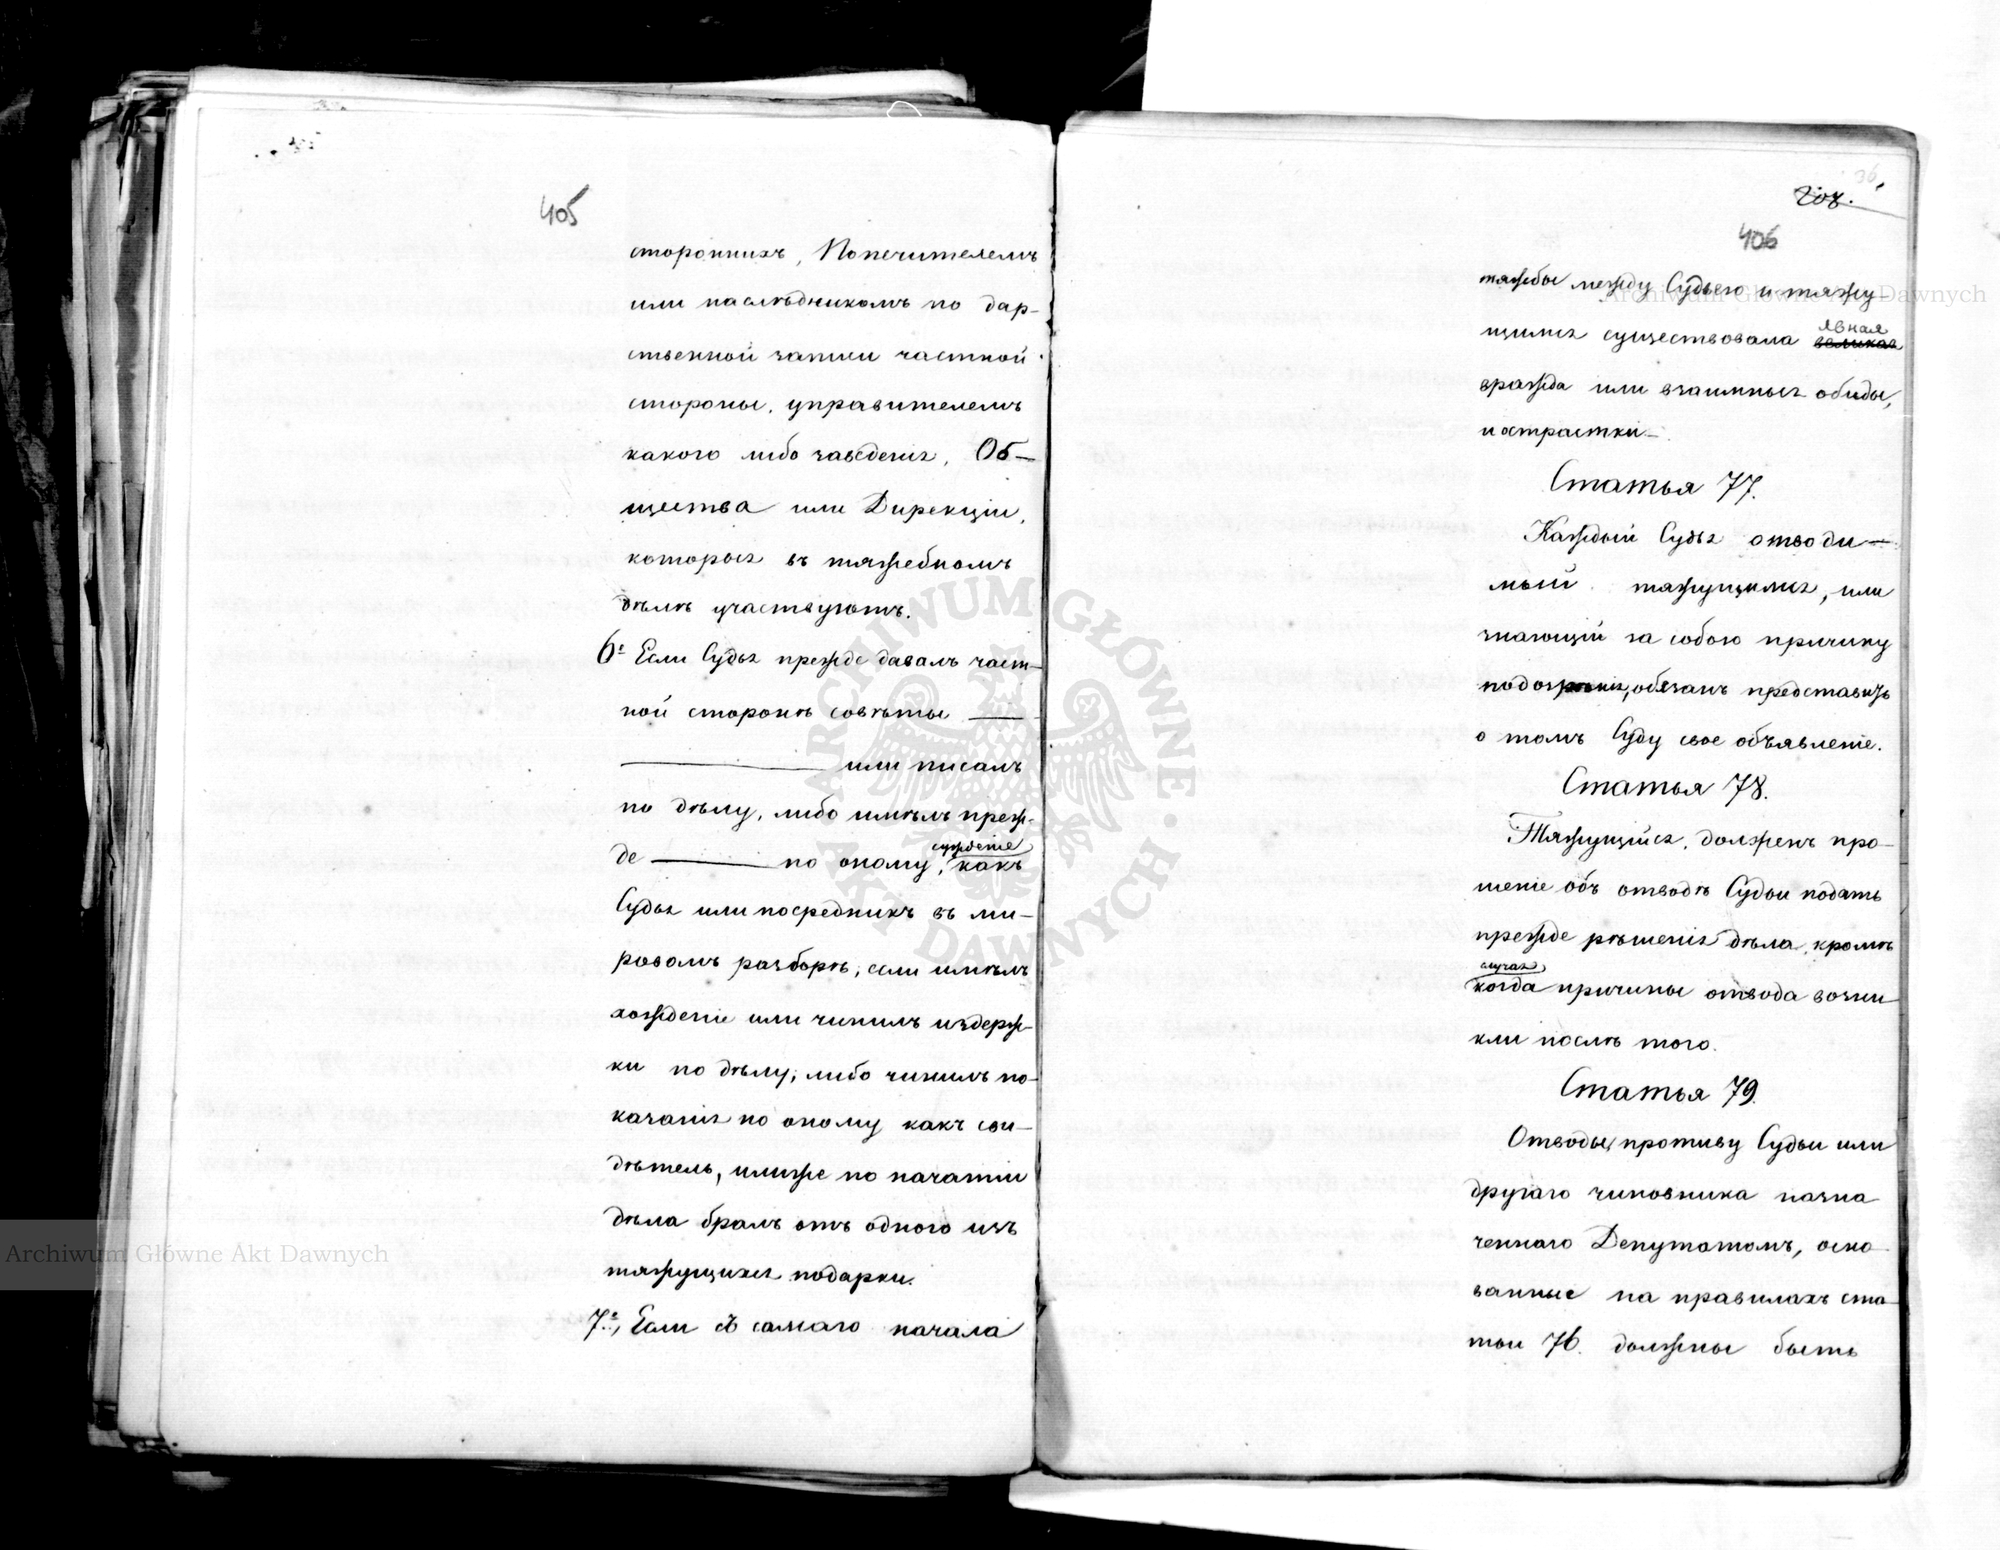 405
сторонихъ, Попечителемъ
или наслѣдникомъ по дар-
ственной записи частной
стороны, управителемъ
какого либо заведенія, Об-
щества или Дирекціи,
которыя въ тяжебномъ
дѣлѣ участвуютъ.
6е Если Судья прежде давалъ част-
ной сторонѣ совѣты —
— или писалъ
по дѣлу, либо имѣлъ преж-
сужденіе
де — по оному, какъ
Судья или посредникъ въ ми-
ровомъ разборѣ, если имѣлъ
хожденіе или чинилъ издерж-
ки по дѣлу, либо чинилъ по-
казанія по оному какъ сви-
дѣтель, илиже по начатіи
дѣла бралъ отъ одного изъ
тяжущихся подарки.
7е, Если съ самаго начала
406
тяжбы между Судьею и тяжу-
явная
щимся существовала
вражда или взаимныя обиды,
и острастки.
Статья 77.
Каждый Судья отводи-
мый тяжущимися, или
знающій за собою причину
подозрѣнія, обязанъ представить
о томъ Суду свое объявленіе.
Статья 78.
Тяжущійся, долженъ про-
шеніе объ отводѣ Судьи подать
прежде рѣшенія дѣла, кромѣ
случая
когда причины отвода возни
кли послѣ того.
Статья 79.
Отводы, противу Судьи или
другаго чиновника назна
ченнаго Депутатомъ, осно
ванные на правилахъ ста-
тьи 76. должны быть
Archiwum Główne Akt Dawnych
Archiwum Główne Akt Dawnych
ARCHIWUM GŁÓWNE · AKT DAWNYCH ·